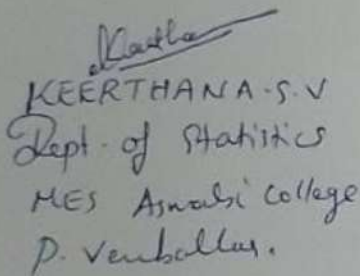 Keertha
KEERTHANA.S.V
Dept. of Statistics
MES Asmabi College
P. Vemballur.